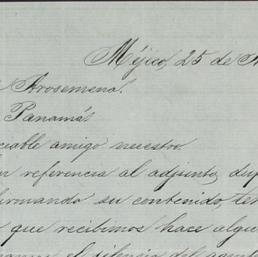 Méjico, 25 de
Arosemena.
Panamá
ciable amigo nuestro
referencia al adjunto, dup
firmando su contenido, ten
que recibimos hace algu
el silencio del